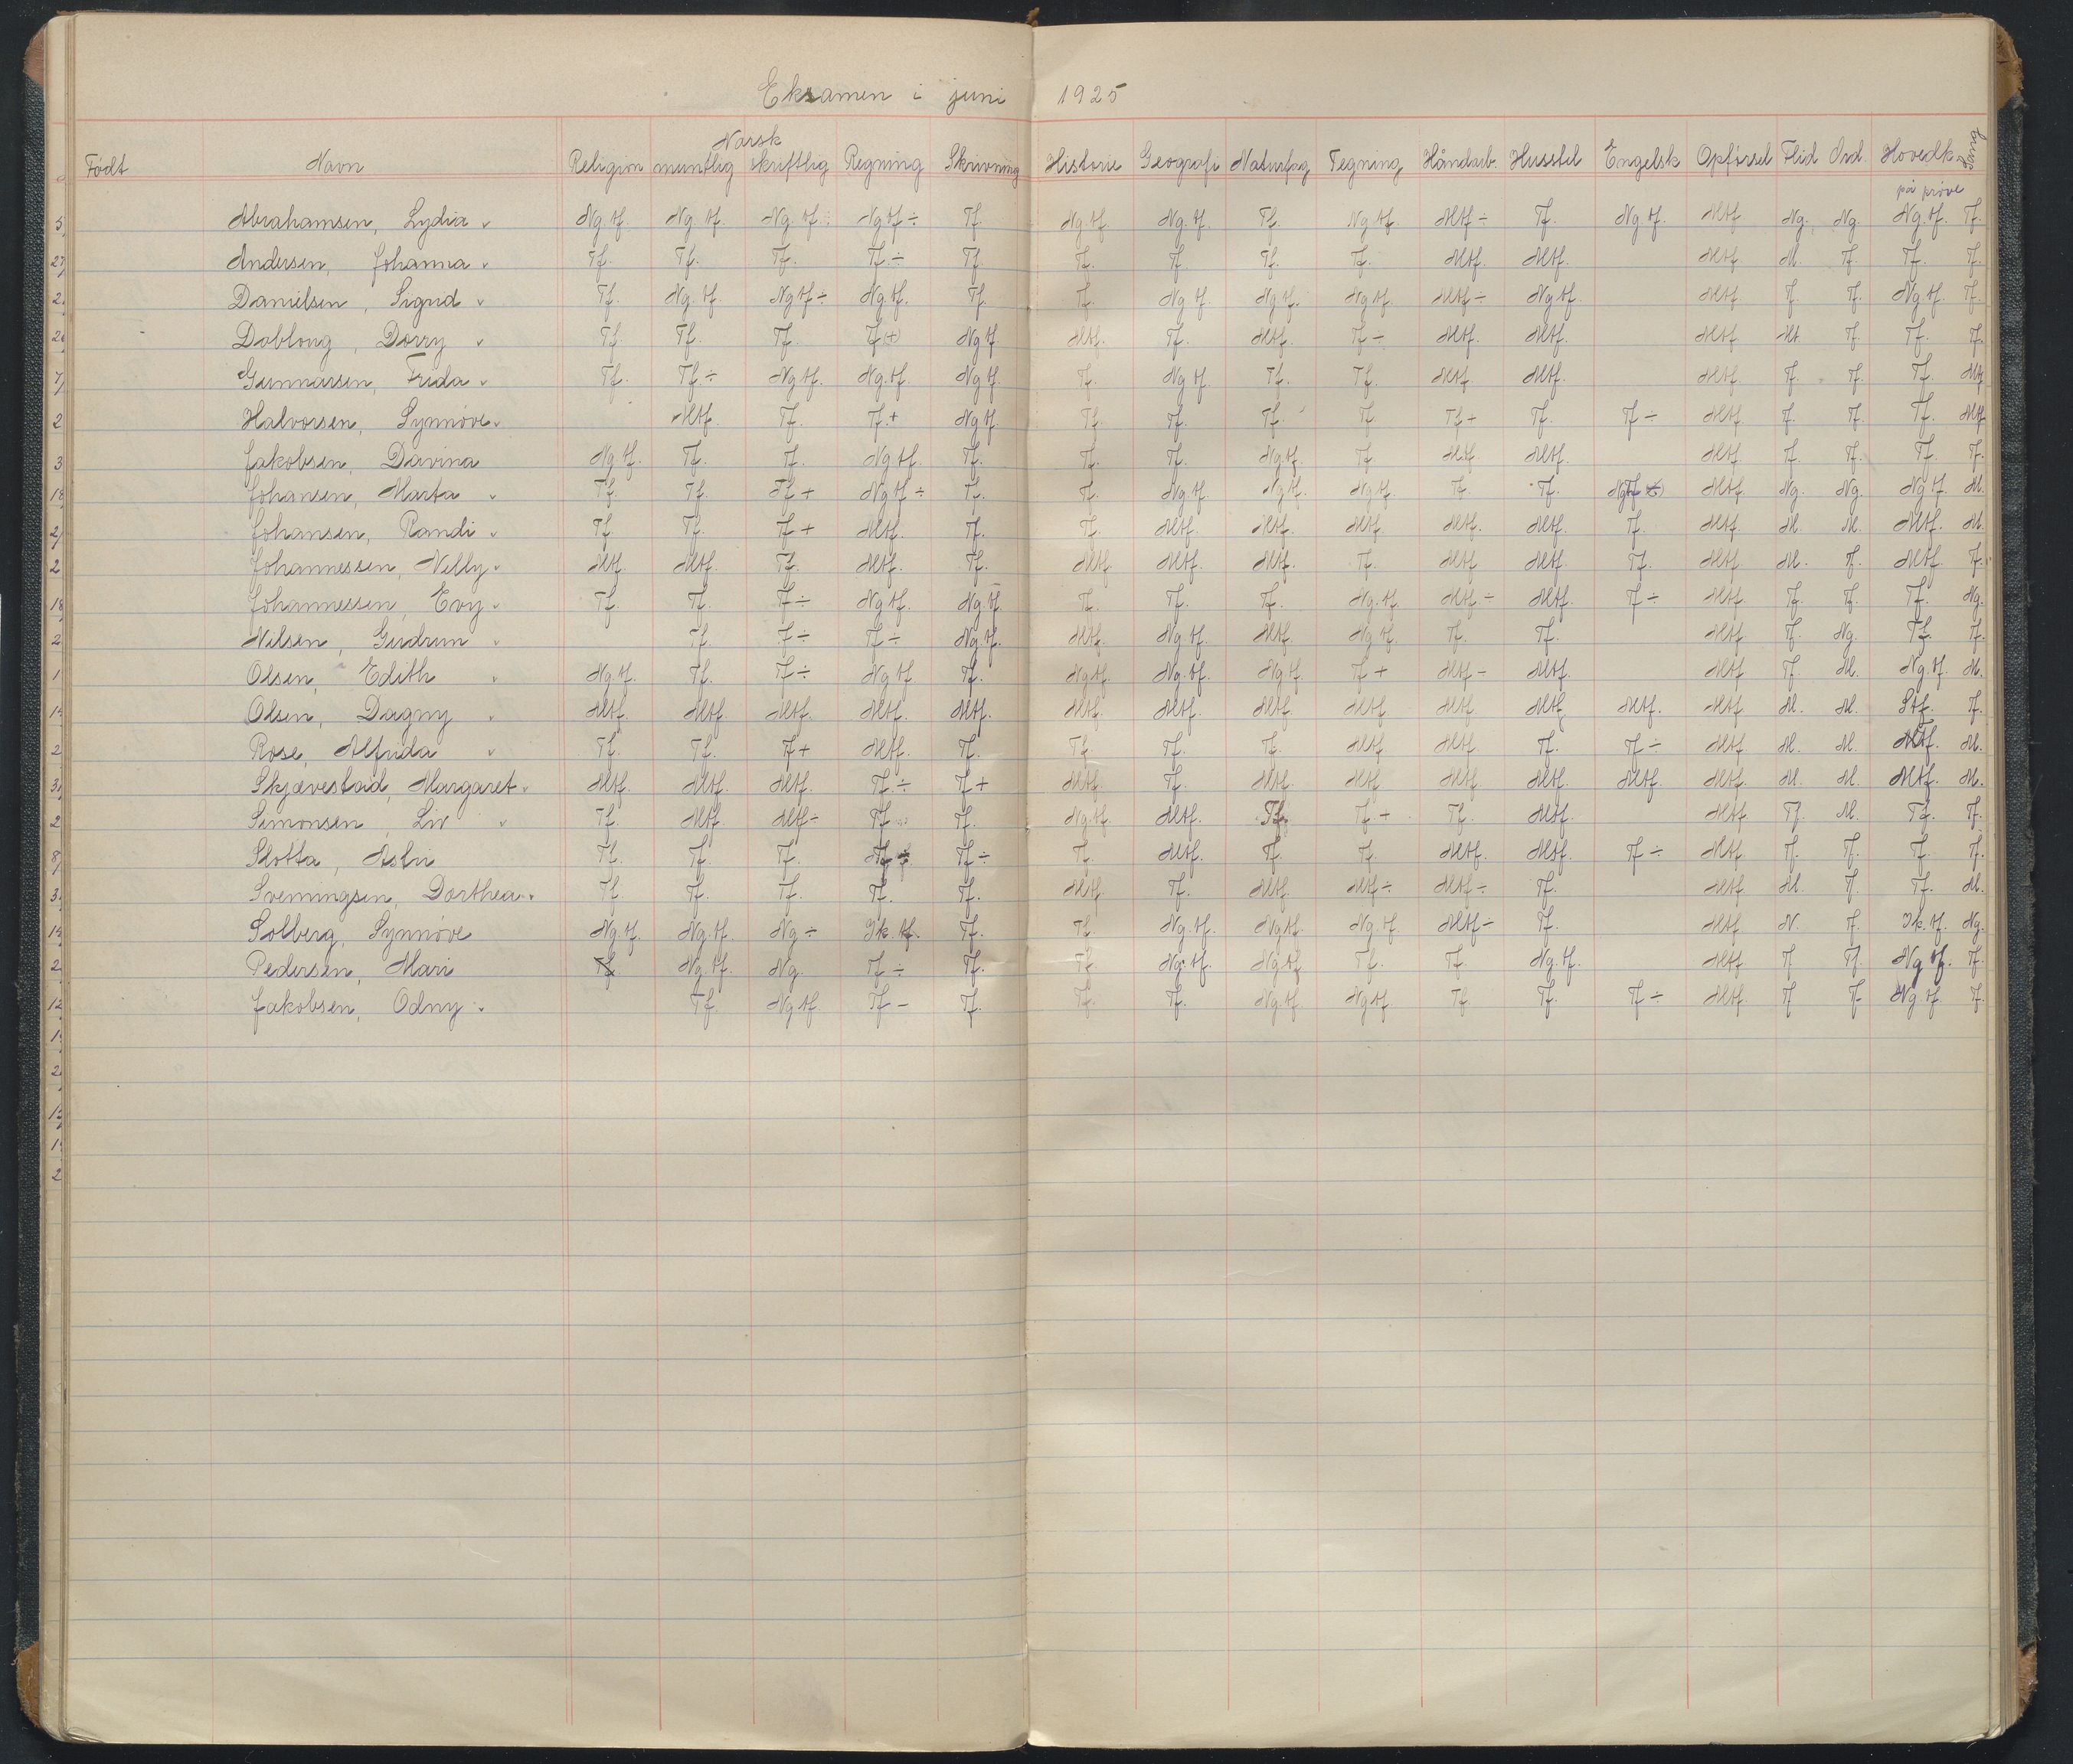 Eksamen i juni 1925
Norsk
Født Navn Religion muntlig skriftlig Regning Skrivning Historie Geografi Naturfag Tegning Håndarb. Husstel Engelsk Opførsel Flid Ord. Hovedk. Sang
på prøve
5 Abrahamsen, Lydia Ng.tf. Ng.tf. Ng.tf÷ Ng.tf÷ Tf. Ng.tf. Ng.tf. Tf. Ng.tf. Mtf÷ Tf. Ng.tf. Mtf Ng. Ng. Ng.tf. Tf.
27 Andersen, Johanna Tf. Tf. Tf. Tf.÷ Tf. Tf. Tf. Tf. Tf. Mtf. Mtf. Mtf M. Tf. Tf. Tf.
2 Danielsen, Sigrid Tf. Ng.tf. Ng.tf÷ Ng.tf. Tf. Tf. Ng.tf. Ng.tf. Ng.tf. Mtf÷ Ng.tf. Mtf. Tf. Tf. Ng.tf. Tf.
20 Doblong, Dorry Tf. Tf. Tf. Tf(+) Ng.tf Mtf. Tf. Mtf. Tf÷ Mtf. Mtf. Mtf M Tf. Tf. Tf.
7 Gunnarsen, Frida Tf. Tf.÷ Ng.tf. Ng.tf. Ng.tf. Tf. Ng.tf. Tf. Tf. Mtf. Mtf. Mtf Tf. Tf. Tf. Mtf
2 Halvorsen, Synnøve Mtf. Tf. Tf.+ Ng.tf. Tf. Tf. Tf. Tf Tf+ Tf. Tf÷ Mtf Tf. Tf. Tf. Mtf
3 Jakobsen, Davina Ng.tf. Tf. Tf. Ng.tf. Tf. Tf. Tf. Ng.tf. Tf Mtf. Mtf. Mtf. Tf. Tf. Tf. Tf.
18 Johansen, Marta Tf. Tf. Tf+ Ng.tf÷ Tf. Tf. Ng.tf. Ng.tf. Ng.tf. Tf. Tf. Mtf. Ng. Ng. Ng.tf. M.
2 Johansen, Randi Tf. Tf. Tf+ Mtf. Tf. Tf. Mtf. Mtf. Mtf Mtf. Mtf. Tf. Mtf M. M. Mtf. M.
2 Johannessen, Nelly Mtf. Mtf. Tf. Mtf. Tf. Mtf. Mtf. Mtf. Tf. Mtf Mtf. Tf. Mtf M. Tf. Mtf. Tf.
18 Johannessen, Evy Tf. Tf. Tf÷ Ng.tf. Ng.tf. Tf. Tf. Tf. Ng.tf. Mtf÷ Mtf. Tf÷ Mtf Tf. Tf. Tf. Ng.
2 Nilsen, Gudrun Tf. Tf÷ Tf÷ Ng.tf. Mtf. Ng.tf. Mtf. Ng.tf. Tf. Tf. Mtf Tf. Ng. Tf. Tf.
1 Olsen, Edith Ng.tf. Tf. Tf÷ Ng.tf. Tf. Ng.tf. Ng.tf. Ng.tf. Tf+ Mtf÷ Mtf. Mtf Tf. M. Ng.tf. M.
14 Olsen, Dagny Mtf. Mtf. Mtf. Mtf. Mtf. Mtf. Mtf. Mtf. Mtf. Mtf Mtf. Mtf. Mtf M. M. Stf. Tf.
2 Rose, Alfrida Tf. Tf. Tf+ Mtf. Tf. Tf. Tf. Tf. Mtf. Mtf. Tf. Tf÷ Mtf M. M. Mtf. M.
3 Skjævestad, Margaret Mtf. Mtf. Mtf. Tf.÷ Tf+ Mtf. Tf. Mtf. Mtf Mtf. Mtf. Mtf Mtf M. M. Mtf. M.
2 Simonsen, Liv Tf. Mtf. Mtf÷ Tf. Tf. Ng.tf. Mtf. Tf. Tf+ Tf. Mtf. Mtf. Tf. M. Tf. Tf.
8 Slotta, Aslu Tf. Tf. Tf. Tf÷ Tf. Mtf. Tf. Tf. Mtf. Mtf. Tf÷ Mtf Tf. Tf. Tf. Tf.
3 Svenningsen, Dorthea Tf. Tf. Tf. Tf. Tf. Mtf. Tf. Mtf. Mtf÷ Mtf÷ Tf. Mtf M. Tf. Tf. M.
14 Solberg, Synnøve Ng.tf. Ng.tf. Ng÷ Ik.tf. Tf. Tf. Ng.tf. Ng.tf. Ng.tf. Mtf÷ Tf. Mtf N. Tf. Ik.tf. Ng.
2 Pedersen, Mari Tf. Ng.tf. Ng. Tf÷ Tf. Tf. Ng.tf. Ng.tf. Tf. Tf. Ng.tf. Mtf Tf Tf. Ng.tf. Tf.
12 Jakobsen, Odny Tf. Ng.tf Tf÷ Tf. Tf. Tf. Ng.tf. Ng.tf. Tf. Tf. Tf÷ Mtf. Tf Tf Ng.tf Tf.
1
2
12
1
2